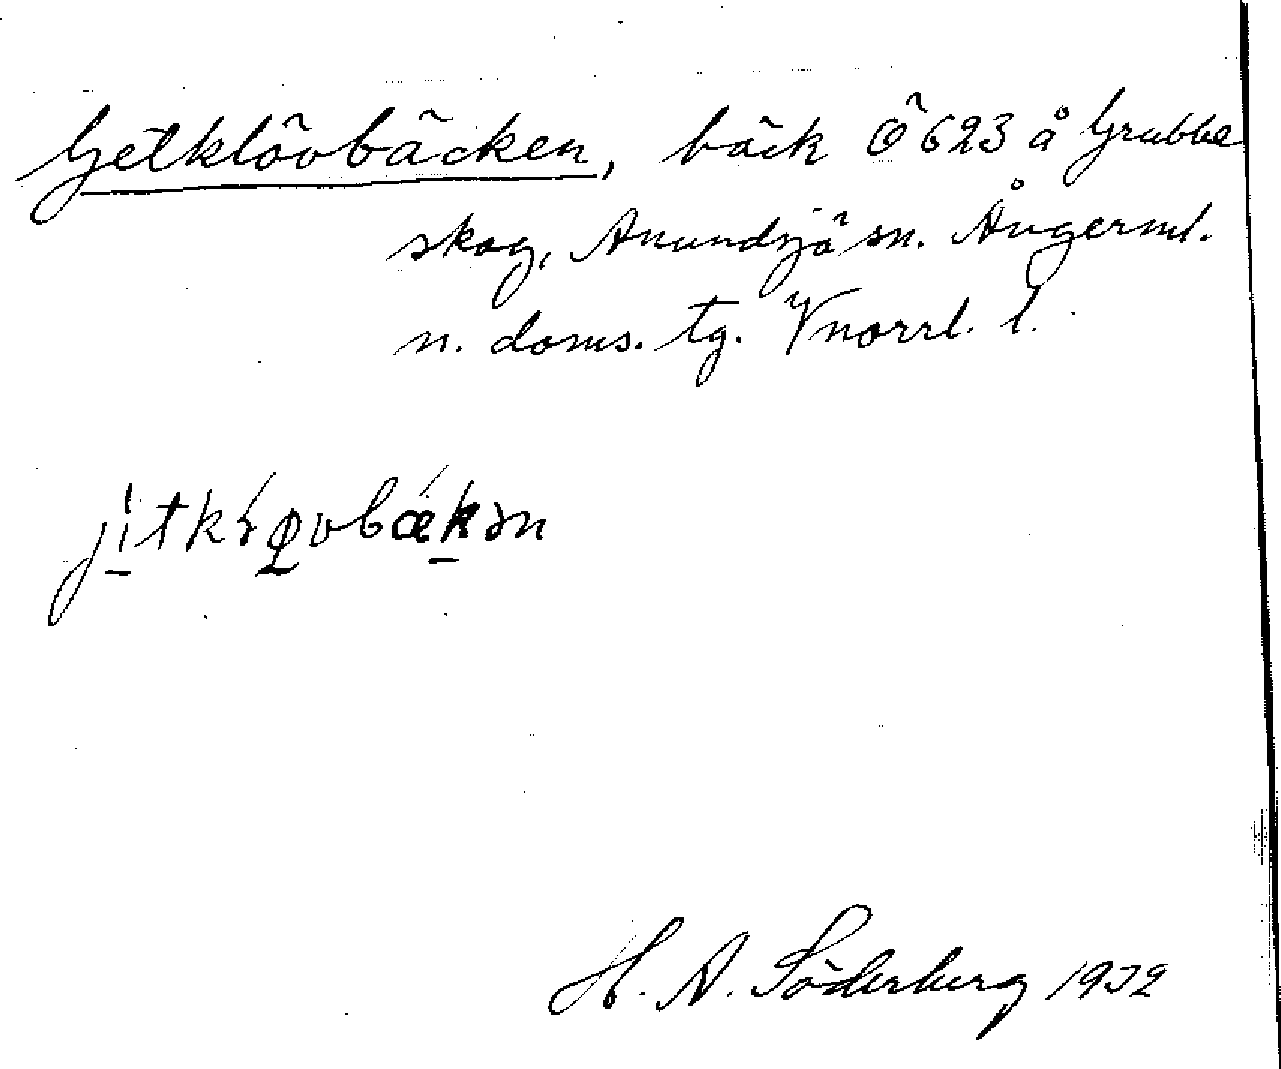 Getklövbäcken, bäck Ö 623 å Grubbe
skog, Anundsjö sn. Ångerml.
n. doms. tg. Vnorrl. l.
H. A. Söderberg 1932